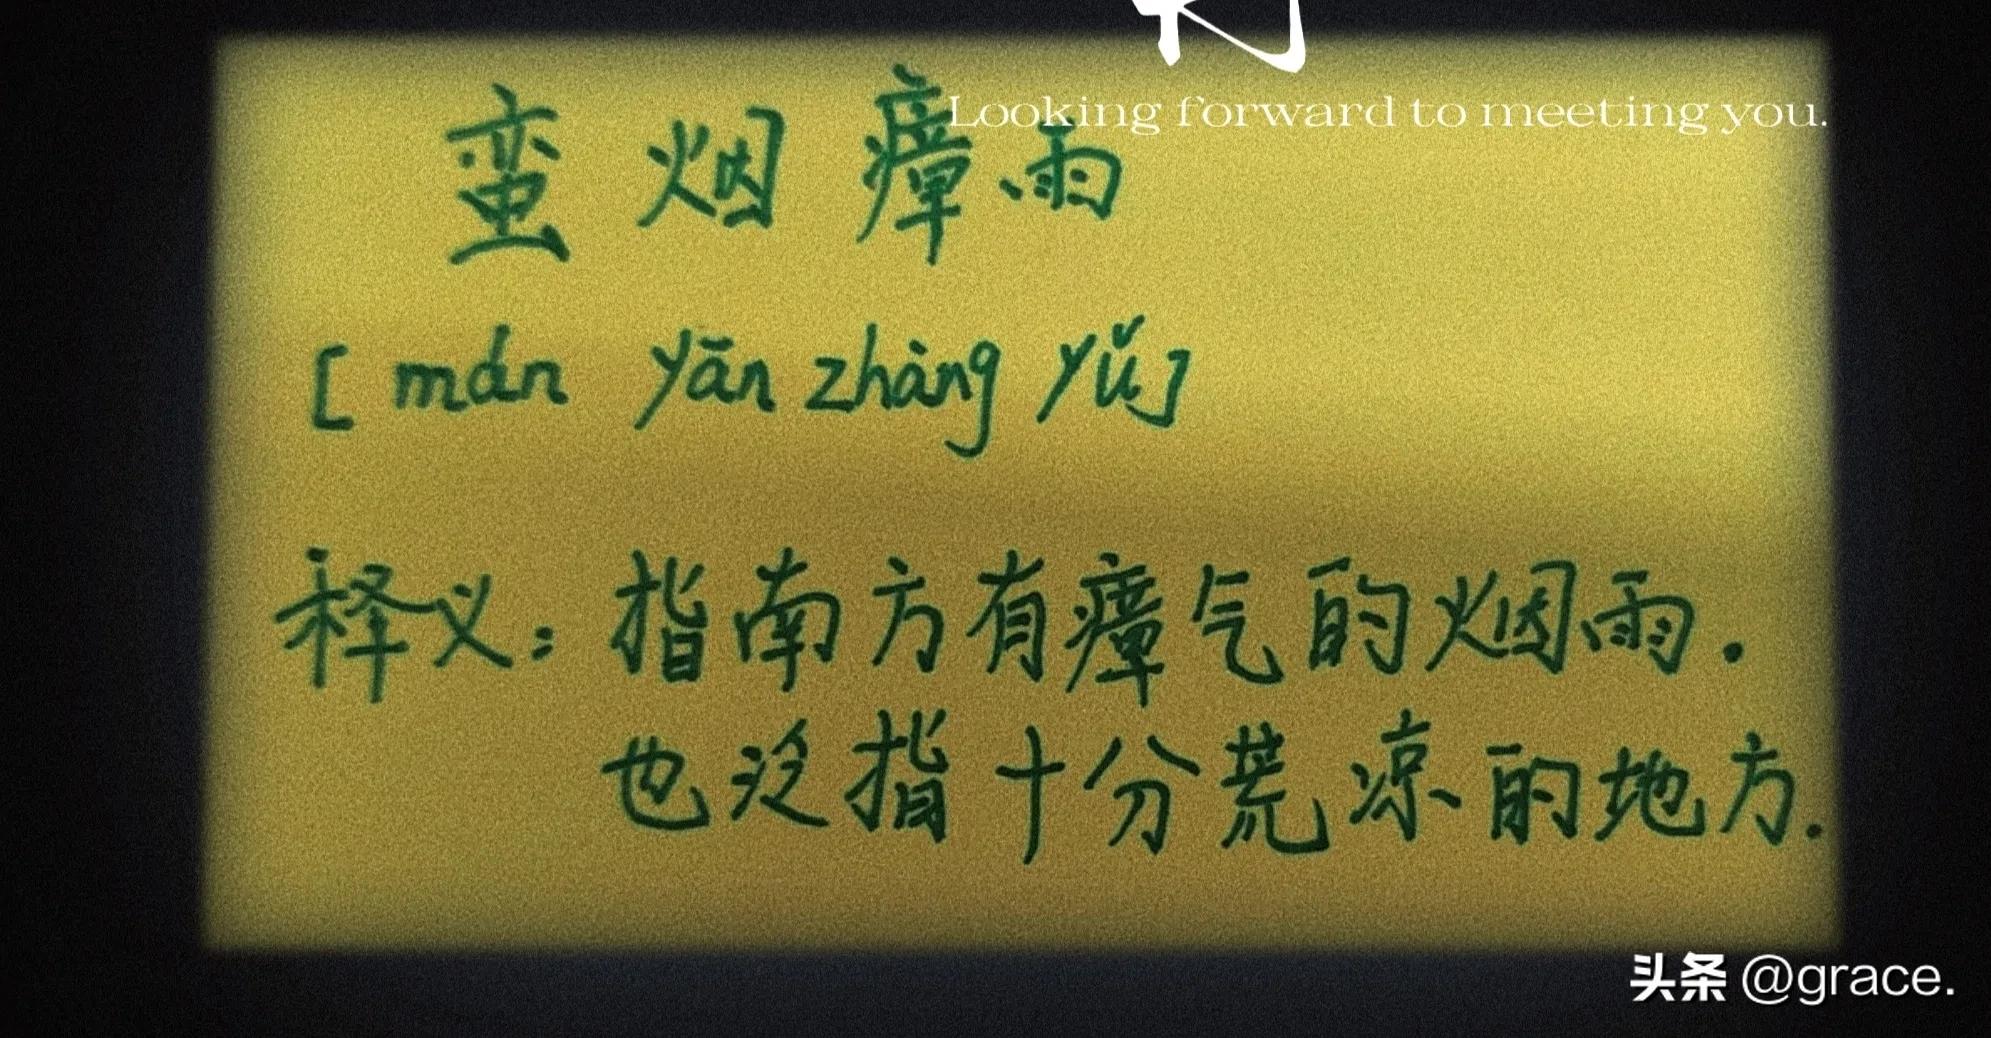 Looking forward to meeting you.
蛮烟瘴雨
[mán yān zhàng yǔ]
释义：指南方有瘴气的烟雨.
也泛指十分荒凉的地方.
头条 @grace.